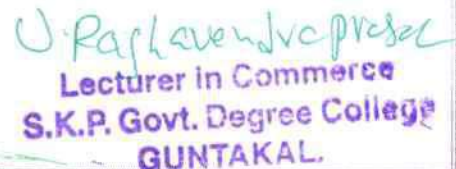 U. Raghavendraprasad
Lecturer in Commerce
S.K.P. Govt. Degree College
GUNTAKAL.